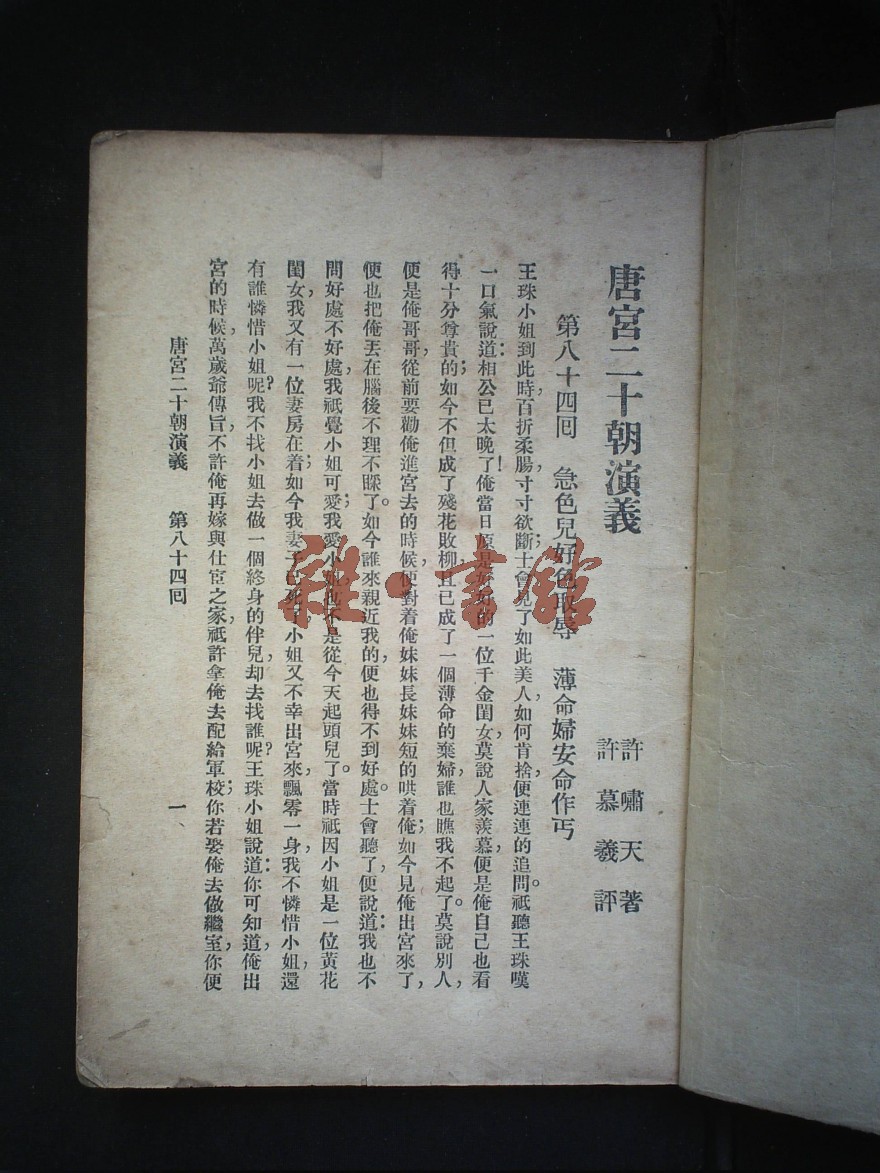 唐宮二十朝演義
許嘯天著
許慕羲評
第八十四回 急色兒好色取辱 薄命婦安命作丐
王珠小姐到此時,百折柔腸,寸寸欲斷;士會見了如此美人,如何肯捨,便連連的追問。祇聽王珠嘆
一口氣說道:相公已太晚了!俺當日原是好好的一位千金閨女,莫說人家羨慕,便是俺自己也看
得十分尊貴的;如今不但成了殘花敗柳,且已成了一個薄命的棄婦,誰也瞧我不起了。莫說別人,
便是俺哥哥,從前要勸俺進宮去的時候,便對着俺妹妹長妹妹短的哄着俺;如今見俺出宮來了,
便也把俺丟在腦後,不理不睬了。如今誰來親近我的,便也得不到好處。士會聽了,便說道:我也不
問好處不好處,我祇覺小姐可愛;我愛小姐,也不是從今天起頭兒了。當時祇因小姐是一位黃花
閨女,我又有一位妻房在着;如今我妻子已死了,小姐又不幸出宮來,飄零一身,我不憐惜小姐,還
有誰憐惜小姐呢?我不找小姐去做一個終身的伴兒,却去找誰呢?王珠小姐說道:你可知道,俺出
宮的時候,萬歲爺傳旨,不許俺再嫁與仕宦之家,祇許拿俺去配給軍校;你若娶俺去做繼室,你便
唐宮二十朝演義 第八十四回 一
雜·書館